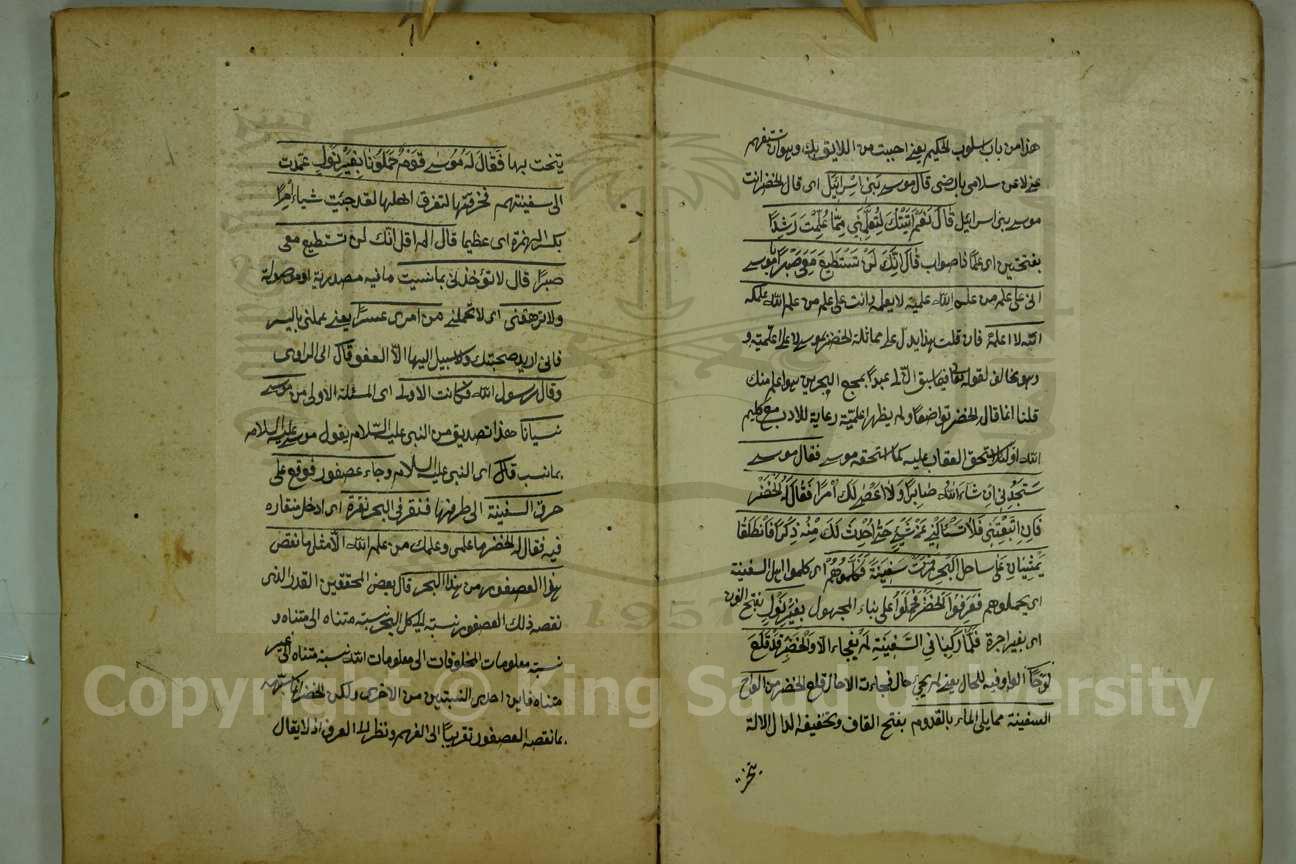 هذا من باب اسلوب الحكيم يعني اجبت من اللايق بك وهو ان تستفهم
عني لا عن سلامي بارضي قال موسى بني اسرائيل اى قال الخضر انت
موسى بني اسرائيل قَالَ نَعَمْ اَتَيْتُكَ لِتُعَلِّمَنِي مِمَّا عُلِّمْتَ رَشَدًا
بفتحتين اى علما ذا صواب قَالَ اِنَّكَ لَنْ تَسْتَطِيعَ مَعِيَ صَبْرًا يا موسى
انى على علم من علم الله علمنيه لا يعلمه وانت على علم من علم الله علمكه
الله لا اعلمه فان قلت هذا يدل على مماثلة الخضر بموسى لا على اعلميته و
وهو مخالف لقوله تعالى فيما سبق ان لى عبدا بمجمع البحرين هو اعلم منك
قلنا انما قال الخضر تواضعا ولم يظهر اعلميته رعاية للادب مع كليم
الله او لئلا يستحق العقاب عليه كما استحقه موسى فقال موسى
سَتَجِدُنِي اِنْ شَاءَ اللهُ صَابِرًا وَلَا اَعْصِي لَكَ اَمْرًا فَقَالَ لَهُ الْخَضِرُ
فَاِنِ اتَّبَعْتَنِي فَلَا تَسْئَلْنِي عَنْ شَيْءٍ حَتَّى اُحْدِثَ لَكَ مِنْهُ ذِكْرًا فَانْطَلَقَا
يَمْشِيَانِ عَلَى سَاحِلِ الْبَحْرِ فَمَرَّتْ سَفِينَةٌ فَكَلَّمُوهُمْ اى كلموا اهل السفينة
اى يحملوهم فَعَرَفُوا الْخَضِرَ فَحُمِلُوا على بناء المجهول بِغَيْرِ نَوْلٍ بفتح النون
اى بغير اجرة فَلَمَّا رَكِبَا فِي السَّفِينَةِ لَمْ يَفْجَأْ اِلَّا وَالْخَضِرُ قَدْ قَلَعَ
لَوْحًا الواو فيه للحال يعنى لم يجئ حال فجاءت الا حال قلع الخضر من الواح
السفينة مما يلى الماء بالقدوم بفتح القاف وتخفيف الدال الالة
ينحت
ينحت بها فَقَالَ لَهُ مُوسَى قَوْمٌ حَمَلُونَا بِغَيْرِ نَوْلٍ عمدت
الى سفينتهم فخرقتها لتغرق اهلها لقد جئت شيئا اِمْرًا
بكسر الهمزة اى عظيما قال الم اقل انك لن تستطيع معى
صبرًا قال لا تؤاخذنى بما نسيت ما فيه مصدرية او موصولة
ولا ترهقنى اى لا تحملنى من امرى عسرًا يعنى عملنى باليسر
فانى اريد صحبتك ولا سبيل اليها الا العفو قال اى الراوى
وقال رسول الله وكانت الاولى اى المسئلة الاولى من موسى
نسيانا هذا تصديق من النبى عليه السلام يقول موسى عليه السلام
بما نسيت قال اى النبى عليه السلام وجاء عصفور فوقع على
حرف السفينة اى طرفها فنقر فى البحر نقرة اى ادخل منقاره
فيه فقال له الخضر ما علمى وعلمك من علم الله الا مثل ما نقص
هذا العصفور من هذا البحر قال بعض المحققين القدر الذى
نقصه ذلك العصفور نسبته الى كل البحر نسبة متناه الى متناه و
نسبة معلومات المخلوقات الى معلومات الله نسبة متناه الى غير
متناه فاين احدى النسبتين من الاخرى ولكن الخضر
بما نقصه العصفور تقريبًا الى الفهم ونظرا الى العرف اذ لا يقال
Copyright © King Saud University
1957